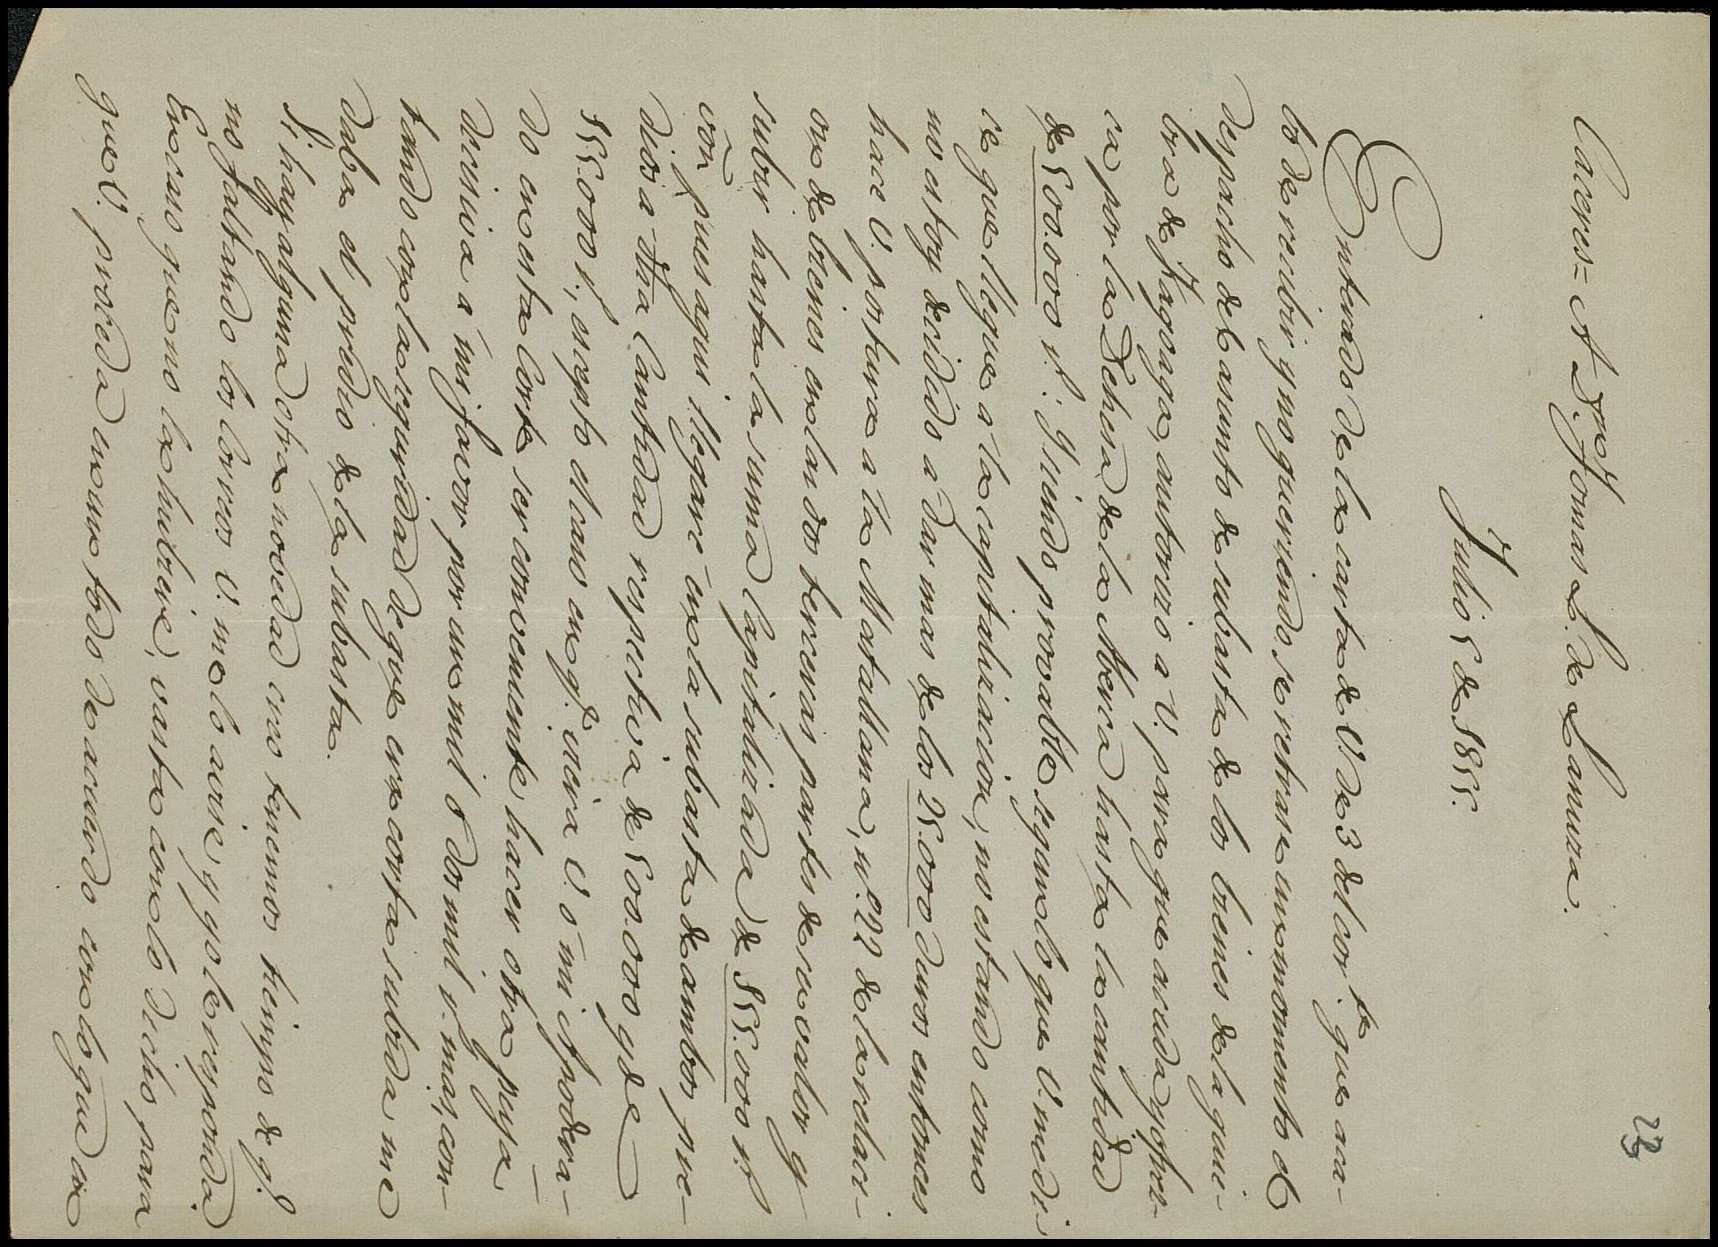 23
Caceres = A D.n Tomas L. de Lanuza.
Julio 5 de 1855.
Enterado de la carta de V. de 3 del cor.te que aca-
bo de recibir y no queriendo se retrase un momento el
despacho del asunto de subasta de los bienes de la quie-
bra de Jagoaga, autorizo a V. para que acuda y ofrez-
ca por la Dehesa de la Aberca hasta la cantidad
de 500.000 r.s Siendo provable segun lo que V. me di-
ce que llegue a la capitalizacion, no estando como
no estoy decidido a dar mas de los 25.000 duros entonces
hace V. postura a la Matallana, n.º 22 de la relaci-
on de bienes en las dos terceras partes de su valor y
subir hasta la suma capitalizada de 555.000 r.s
von, pues aqui llegaré en la subasta de ambos pre-
dios a una cantidad respectiva de 500.000 y de
555.000 r.s, escepto el caso en q.e crea V. ó mi Apodera-
do en esta Corte ser conveniente hacer otra puja
decisiva á mi favor por un mil ó dos mil r.s mas, con-
tando con la seguridad de que con corta subida me
daba el predio de la subasta.
Si hay alguna otra novedad creo tenemos tiempo de q.e
no faltando los correos V. me lo avise, y yo le responda.
En caso que no la hubiere, vasta con lo dicho para
que V. proceda en un todo de acuerdo con lo que en